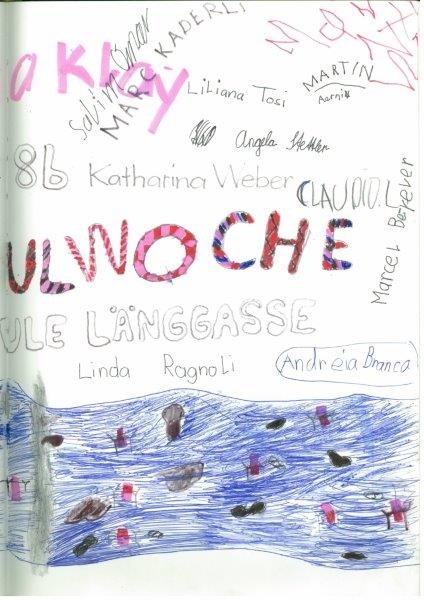 a Kläy
Sabin Omar
MARC KADERLI
Liliana Tosi
MARTIN
Aerni
Angela Stettler
8b Katharina Weber
CLAUDIO.L
Marcel Beyeler
ULWOCHE
ULE LÄNGGASSE
Linda Ragnoli
Andréia Branca